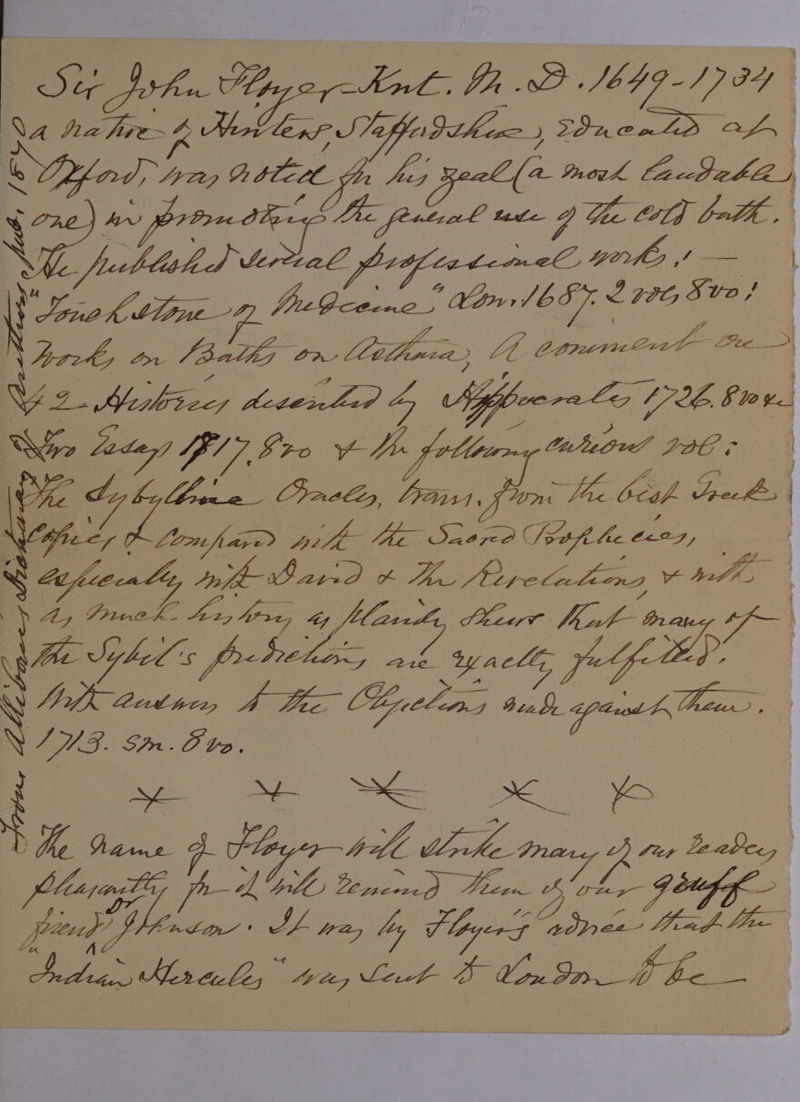 Sir John Floyer-Knt. M.D. 1649-1734
a native of Hinters, Staffordshire, educated at
Oxford, was noted for his zeal (a most laudable
one) in promoting the general use of the cold bath.
He published several professional works: —
"Touchstone of Medicine" Lon. 1687. 2 vols 8vo:
Works on Baths on Asthma, A comment on
42 Histories described by Hippocrates 1726. 8vo &c
Two Essays 1717, 8vo & the following curious vol:
The Sybylline Oracles, trans. from the best Greek
Copies & compared with the Sacred Prophecies,
especially with David & the Revelations, & with
as much history as plainly shews that many of
the Sybil's predictions are exactly fulfilled.
With answers to the Objections made against them.
1713. sm. 8vo.
The name of Floyer will strike many of our readers
pleasantly for it will remind them of our gruff
friend Dr Johnson. It was by Floyer's advice that the
"Indian Hercules" was sent to London to be
From Allibone's Dictionary of Authors, pub. 1870